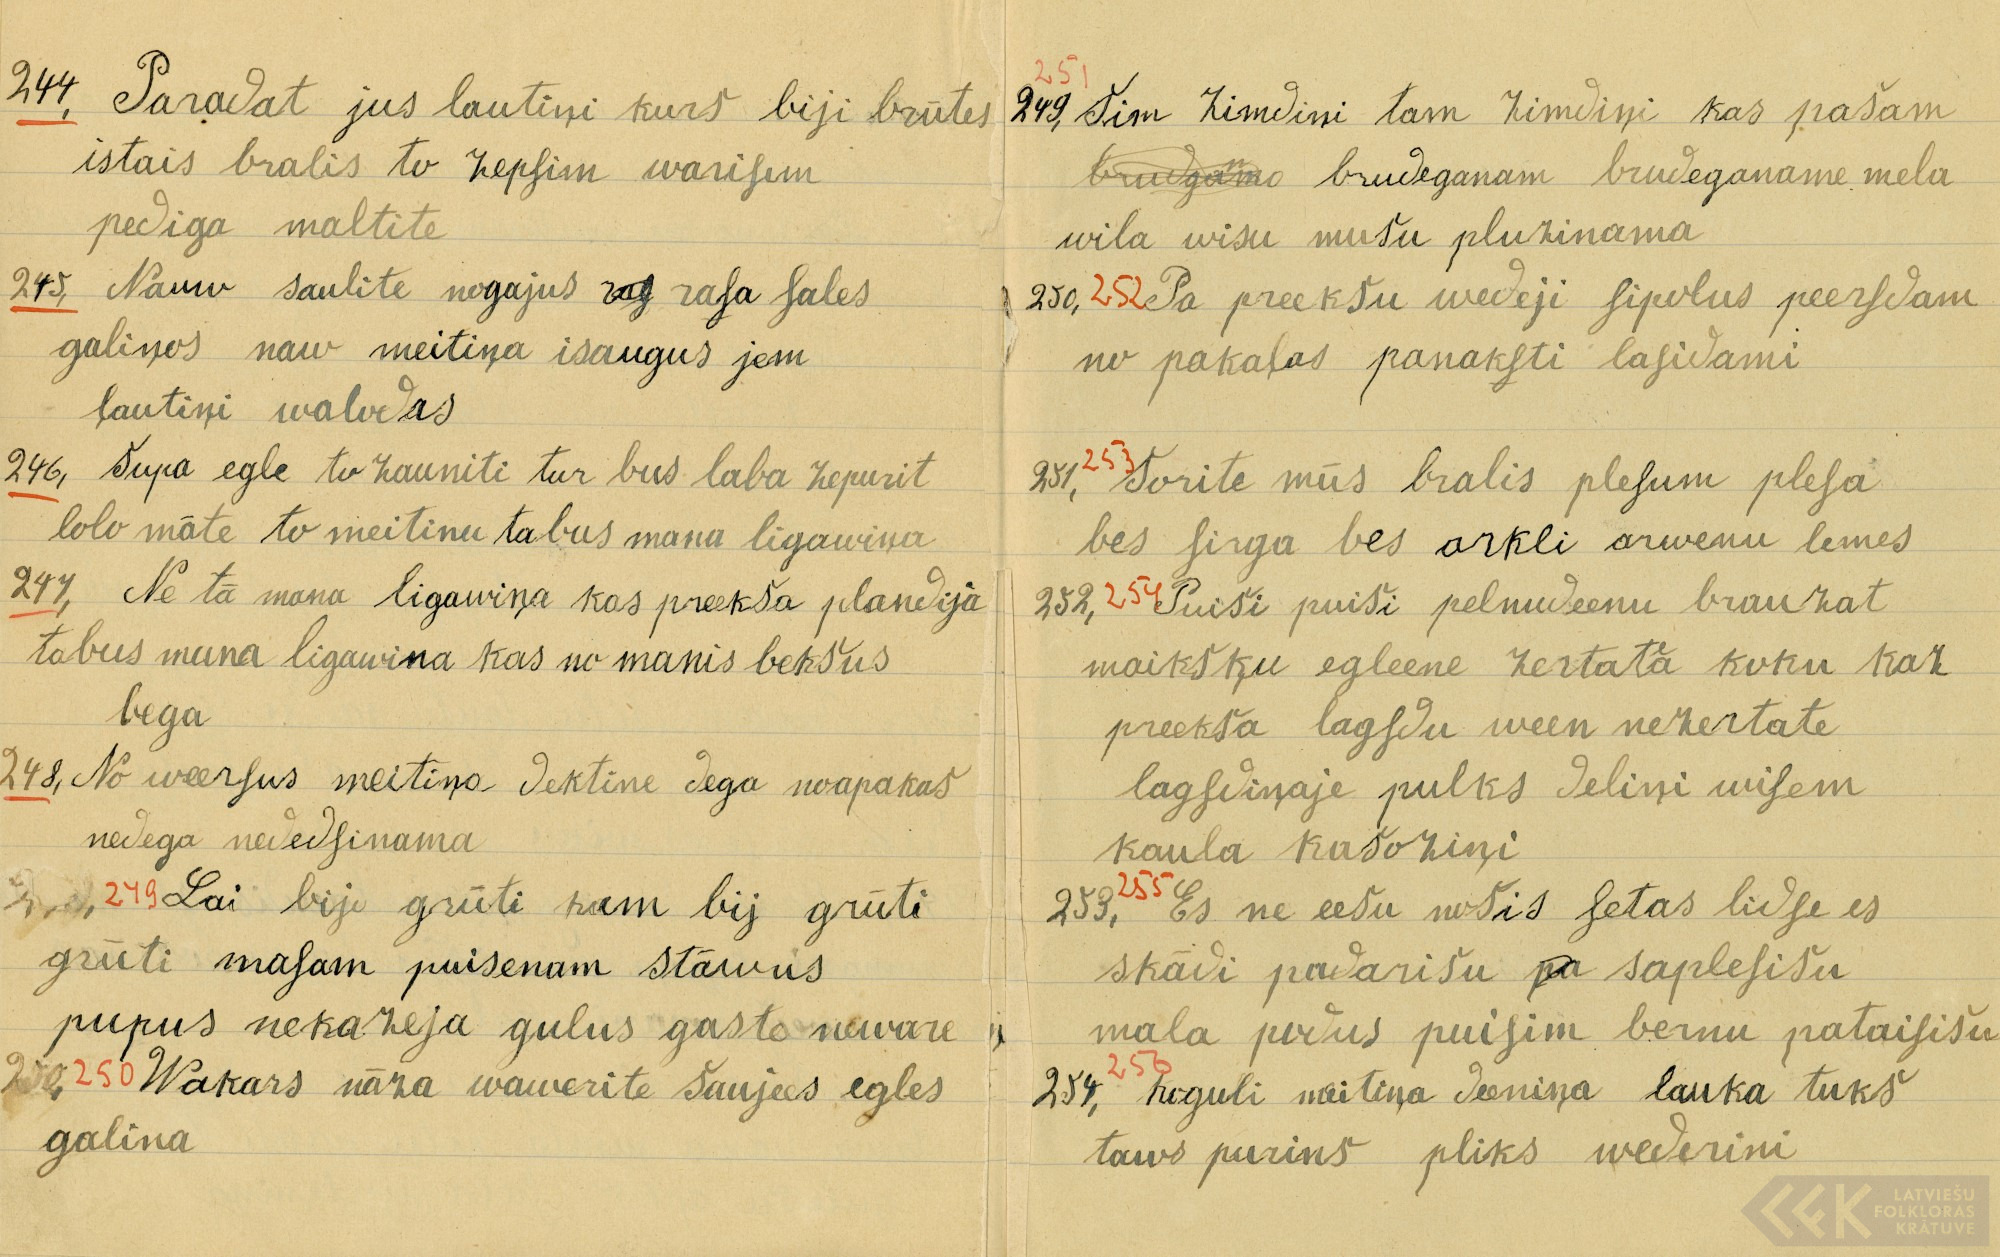 244, Paradat jus lautiņi kurš biji brūtes
istais bralis to zepsim warisem
pediga maltite
245, Nauw saulite nogajus rasa sales
galiņos naw meitiņa isaugus jem
ļautiņi walodas
246, Šupa egle to zauniti tur bus laba zepurit
lolo māte to meitinu tabus mana ligawiņa
247, Ne tā mana ligawiņa kas preekša plandijā
tabus mana ligawina kas no manis bekšus
bega
248, No weersus meitiņa dektine dega noapakaš
nedega nededsinama
249 Lai bije grūti kam bij grūti
grūti masam puisenam stāwus
pupus nekazeja gulus gasto neware
250 Wakars nāza wawerite šaujees egles
galina
251
249, Šim zimdiņi tam zimdiņi kas pašam
brudeganam brudeganame mela
wila wisu mušu pluzinama
250, 252 Pa preekšu wedeji sipolus peersdam
no pakaļas panaksti lasidami
251, 253 Torite mūs bralis plesum plesa
bes sirga bes arkli arwenu lemes
252, 254 Puiši puiši pelnudeenu brauzat
maikšķu egleene zertatā koku kaz
preekša lagsdu ween nezertate
lagsdiņaje pulks deliņi wisem
kaula kašoziņi
253, 255 Es ne eešu nošis setas lidse es
skādi padarišu saplesišu
mala podus puisim bernu pataisišu
254, 256 koguli meitiņa deeniņa lauka tukš
taws purinš pliks wederini
LATVIEŠU
FOLKLORAS
KRĀTUVE